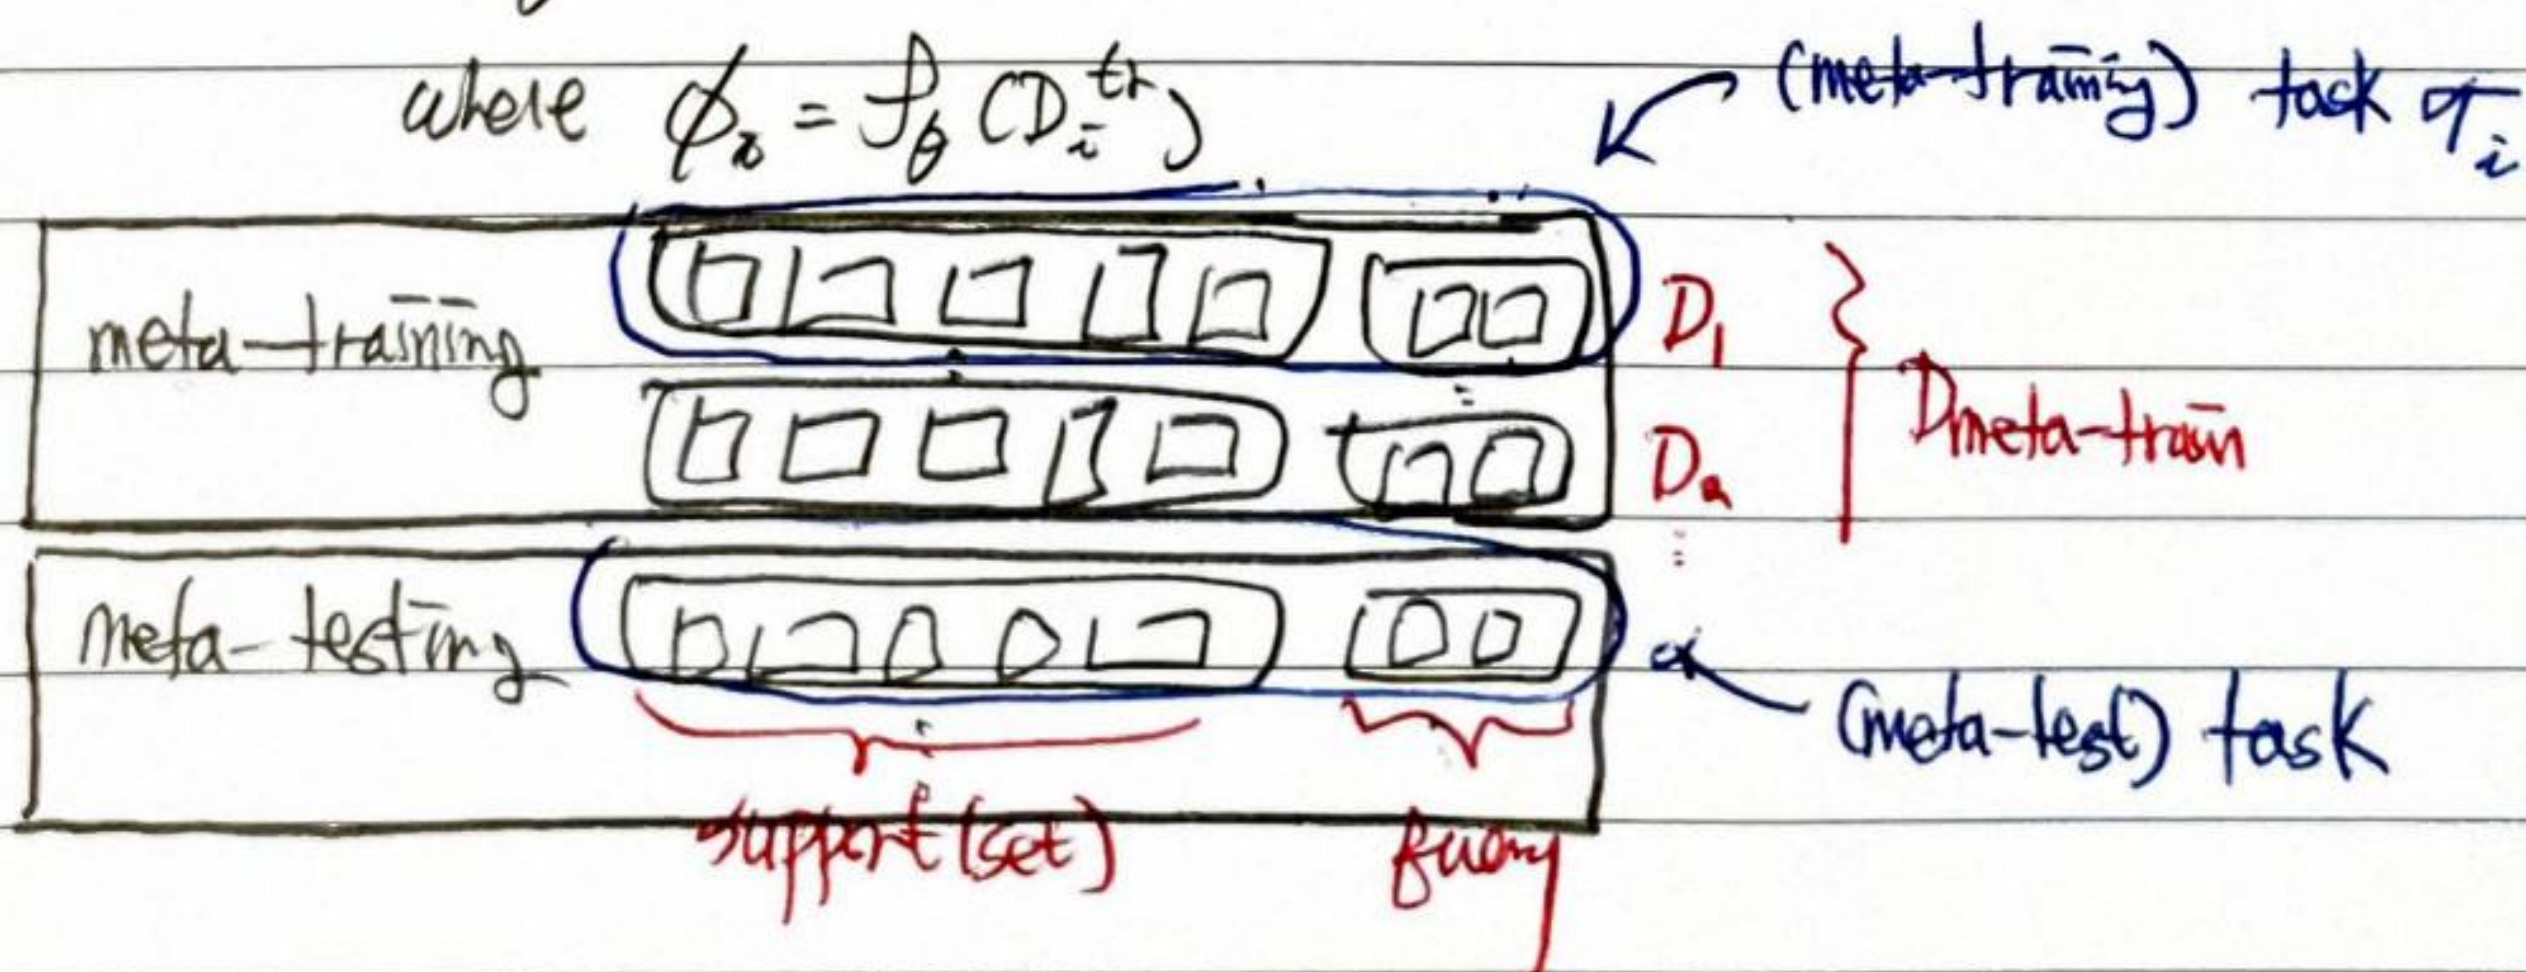 where ϕ_i = f_θ (D_i^tr)
(meta-training) task 𝒯_i
meta-training
D_1
D_2
⋮
D_meta-train
meta-testing
(meta-test) task
support (set)
query